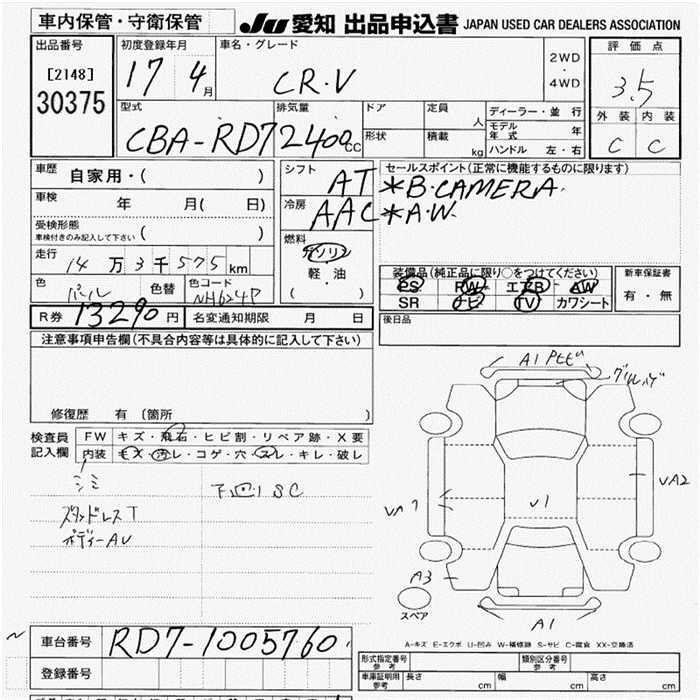 車内保管・守衛保管
JU 愛知 出品申込書 JAPAN USED CAR DEALERS ASSOCIATION
出品番号
[2148]
30375
初度登録年月
17 4月
車名・グレード
CR-V
2WD
・
4WD
評価点
3.5
外装 内装
C C
型式
CBA-RD7
排気量
2400cc
ドア
形状
定員 人
積載 kg
ディーラー・並行
モデル年式 年
ハンドル 左・右
車歴
自家用・( )
車検 年 月( 日)
受検形態
車検付きのみ記入して下さい ( )
走行
14万3千575km
色 パール 色替 色コード NH624P
シフト
AT
冷房
AAC
燃料
ガソリン
軽・油
( )
セールスポイント(正常に機能するものに限ります)
*B.CAMERA.
*A.W.
装備品(純正品に限り○をつけてください)
PS PW エアB AW
SR ナビ TV カワシート
新車保証書
有・無
R券 13290円
名変通知期限 月 日
後日品
注意事項申告欄(不具合内容等は具体的に記入して下さい)
修復歴 有 〔箇所 〕
検査員
記入欄
FW キズ・飛石・ヒビ割・リペア跡・X要
内装 キズ・汚レ・コゲ・穴・スレ・キレ・破レ
シミ
下回りSC
スタッドレスT
ボディーAU
A1
グリルハゲ
UA2
UA7
U1
A3
スペア
A1
A-キズ E-エクボ U-凹み W-補修跡 S-サビ C-腐食 XX-交換済
車台番号
RD7-1005760
登録番号
形式指定番号
参考
類別区分番号
参考
車庫証明用
参考
長さ cm 幅 cm 高さ cm